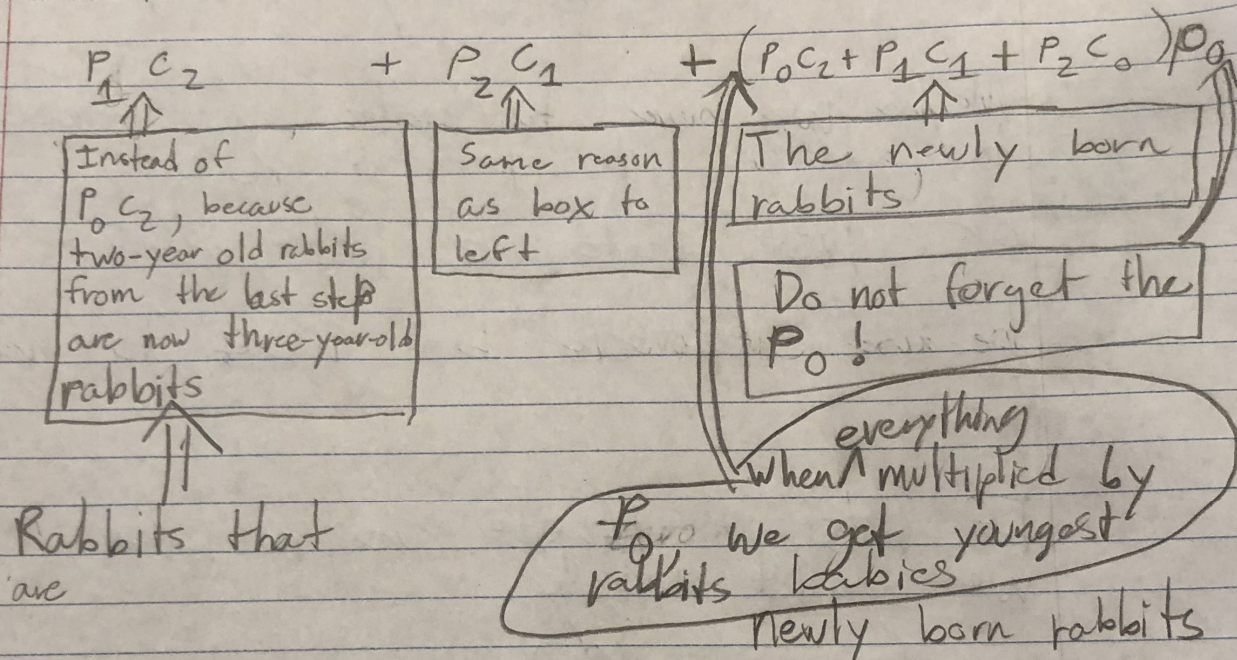 P₁C₂ + P₂C₁ + (P₀C₂ + P₁C₁ + P₂C₀)P₀
Instead of
P₀C₂, because
two-year old rabbits
from the last step
are now three-year-old
rabbits
Same reason
as box to
left
The newly born
rabbits
Do not forget the
P₀!
everything
when ^ multiplied by
P₀ we get youngest
rabbits babies
newly born rabbits
Rabbits that
are